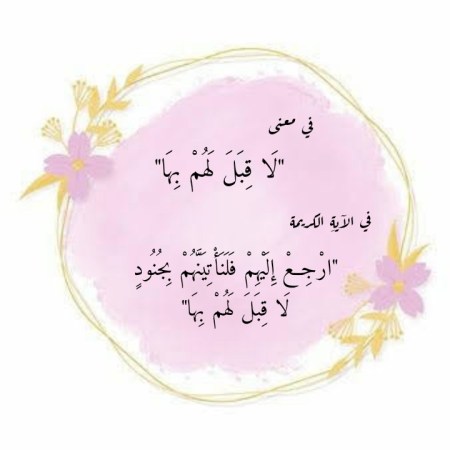 في معنى
"لَا قِبَلَ لَهُمْ بِهَا"
في الآية الكريمة
"ارْجِعْ إِلَيْهِمْ فَلَنَأْتِيَنَّهُمْ بِجُنُودٍ
لَا قِبَلَ لَهُمْ بِهَا"